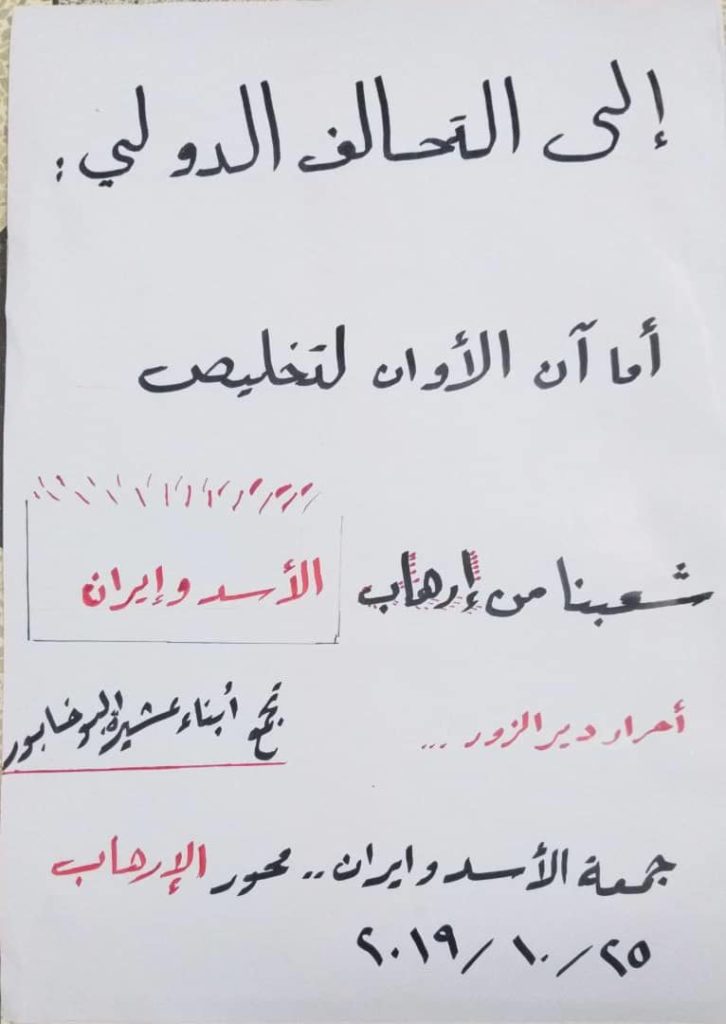 إلى التحالف الدولي :
أما آن الأوان لتخليص
شعبنا من إرهاب الأسد وإيران
أحرار دير الزور ...
تجمع أبناء عشيرة البوخابور
جمعة الأسد وايران .. محور الإرهاب
٢٠١٩/١٠/٢٥